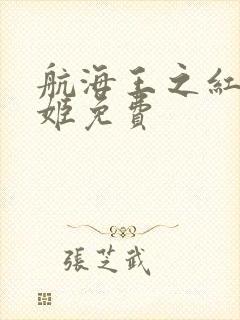 航海王之紅
姬免費
張芝武